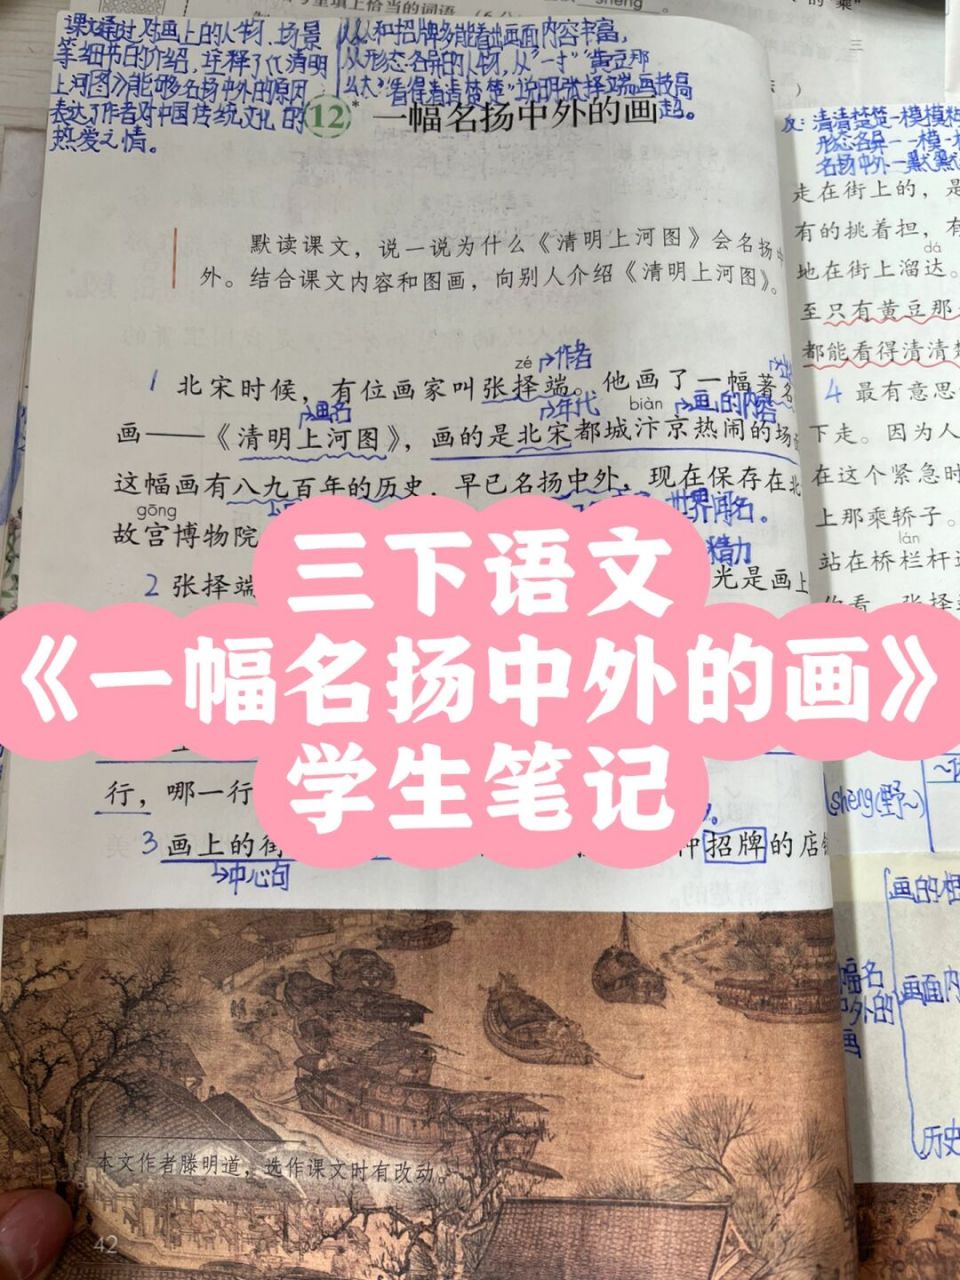 里填上恰当的词语
shěng
的"乘"
三
课文通过对画上的人物、场景
等细节的介绍，详释了《清明
上河图》能够名扬中外的原因
表达了作者对中国传统文化的
热爱之情。
从从和招牌多能看出画面内容丰富，
从形态各异的人物，从"一寸""黄豆那
么大""看得清清楚楚"说明张择端画技高
超。
12* 一幅名扬中外的画
默读课文，说一说为什么《清明上河图》会名扬中
外。结合课文内容和图画，向别人介绍《清明上河图》。
zé →作者
1 北宋时候，有位画家叫张择端。他画了一幅著名
→画名 →年代 biàn →画的内容
画——《清明上河图》，画的是北宋都城汴京热闹的场
这幅画有八九百年的历史，早已名扬中外，现在保存在北
gōng 世界闻名。
故宫博物院
精力
2 张择端 光是画上
行，哪一行
3 画上的街 种招牌的店铺
→中心句
三下语文
《一幅名扬中外的画》
学生笔记
本文作者滕明道，选作课文时有改动。
42
反：清清楚楚—模模糊
形态各异—一模一
名扬中外—默默
走在街上的，是
有的挑着担，有
dá
地在街上溜达。
至只有黄豆那
都能看得清清楚
4 最有意思
下走。因为人
在这个紧急时
上那乘轿子。
lán
站在桥栏杆边
你看，张择端
shèng(野~)
画的
幅名
中外的
画
画面内
历史